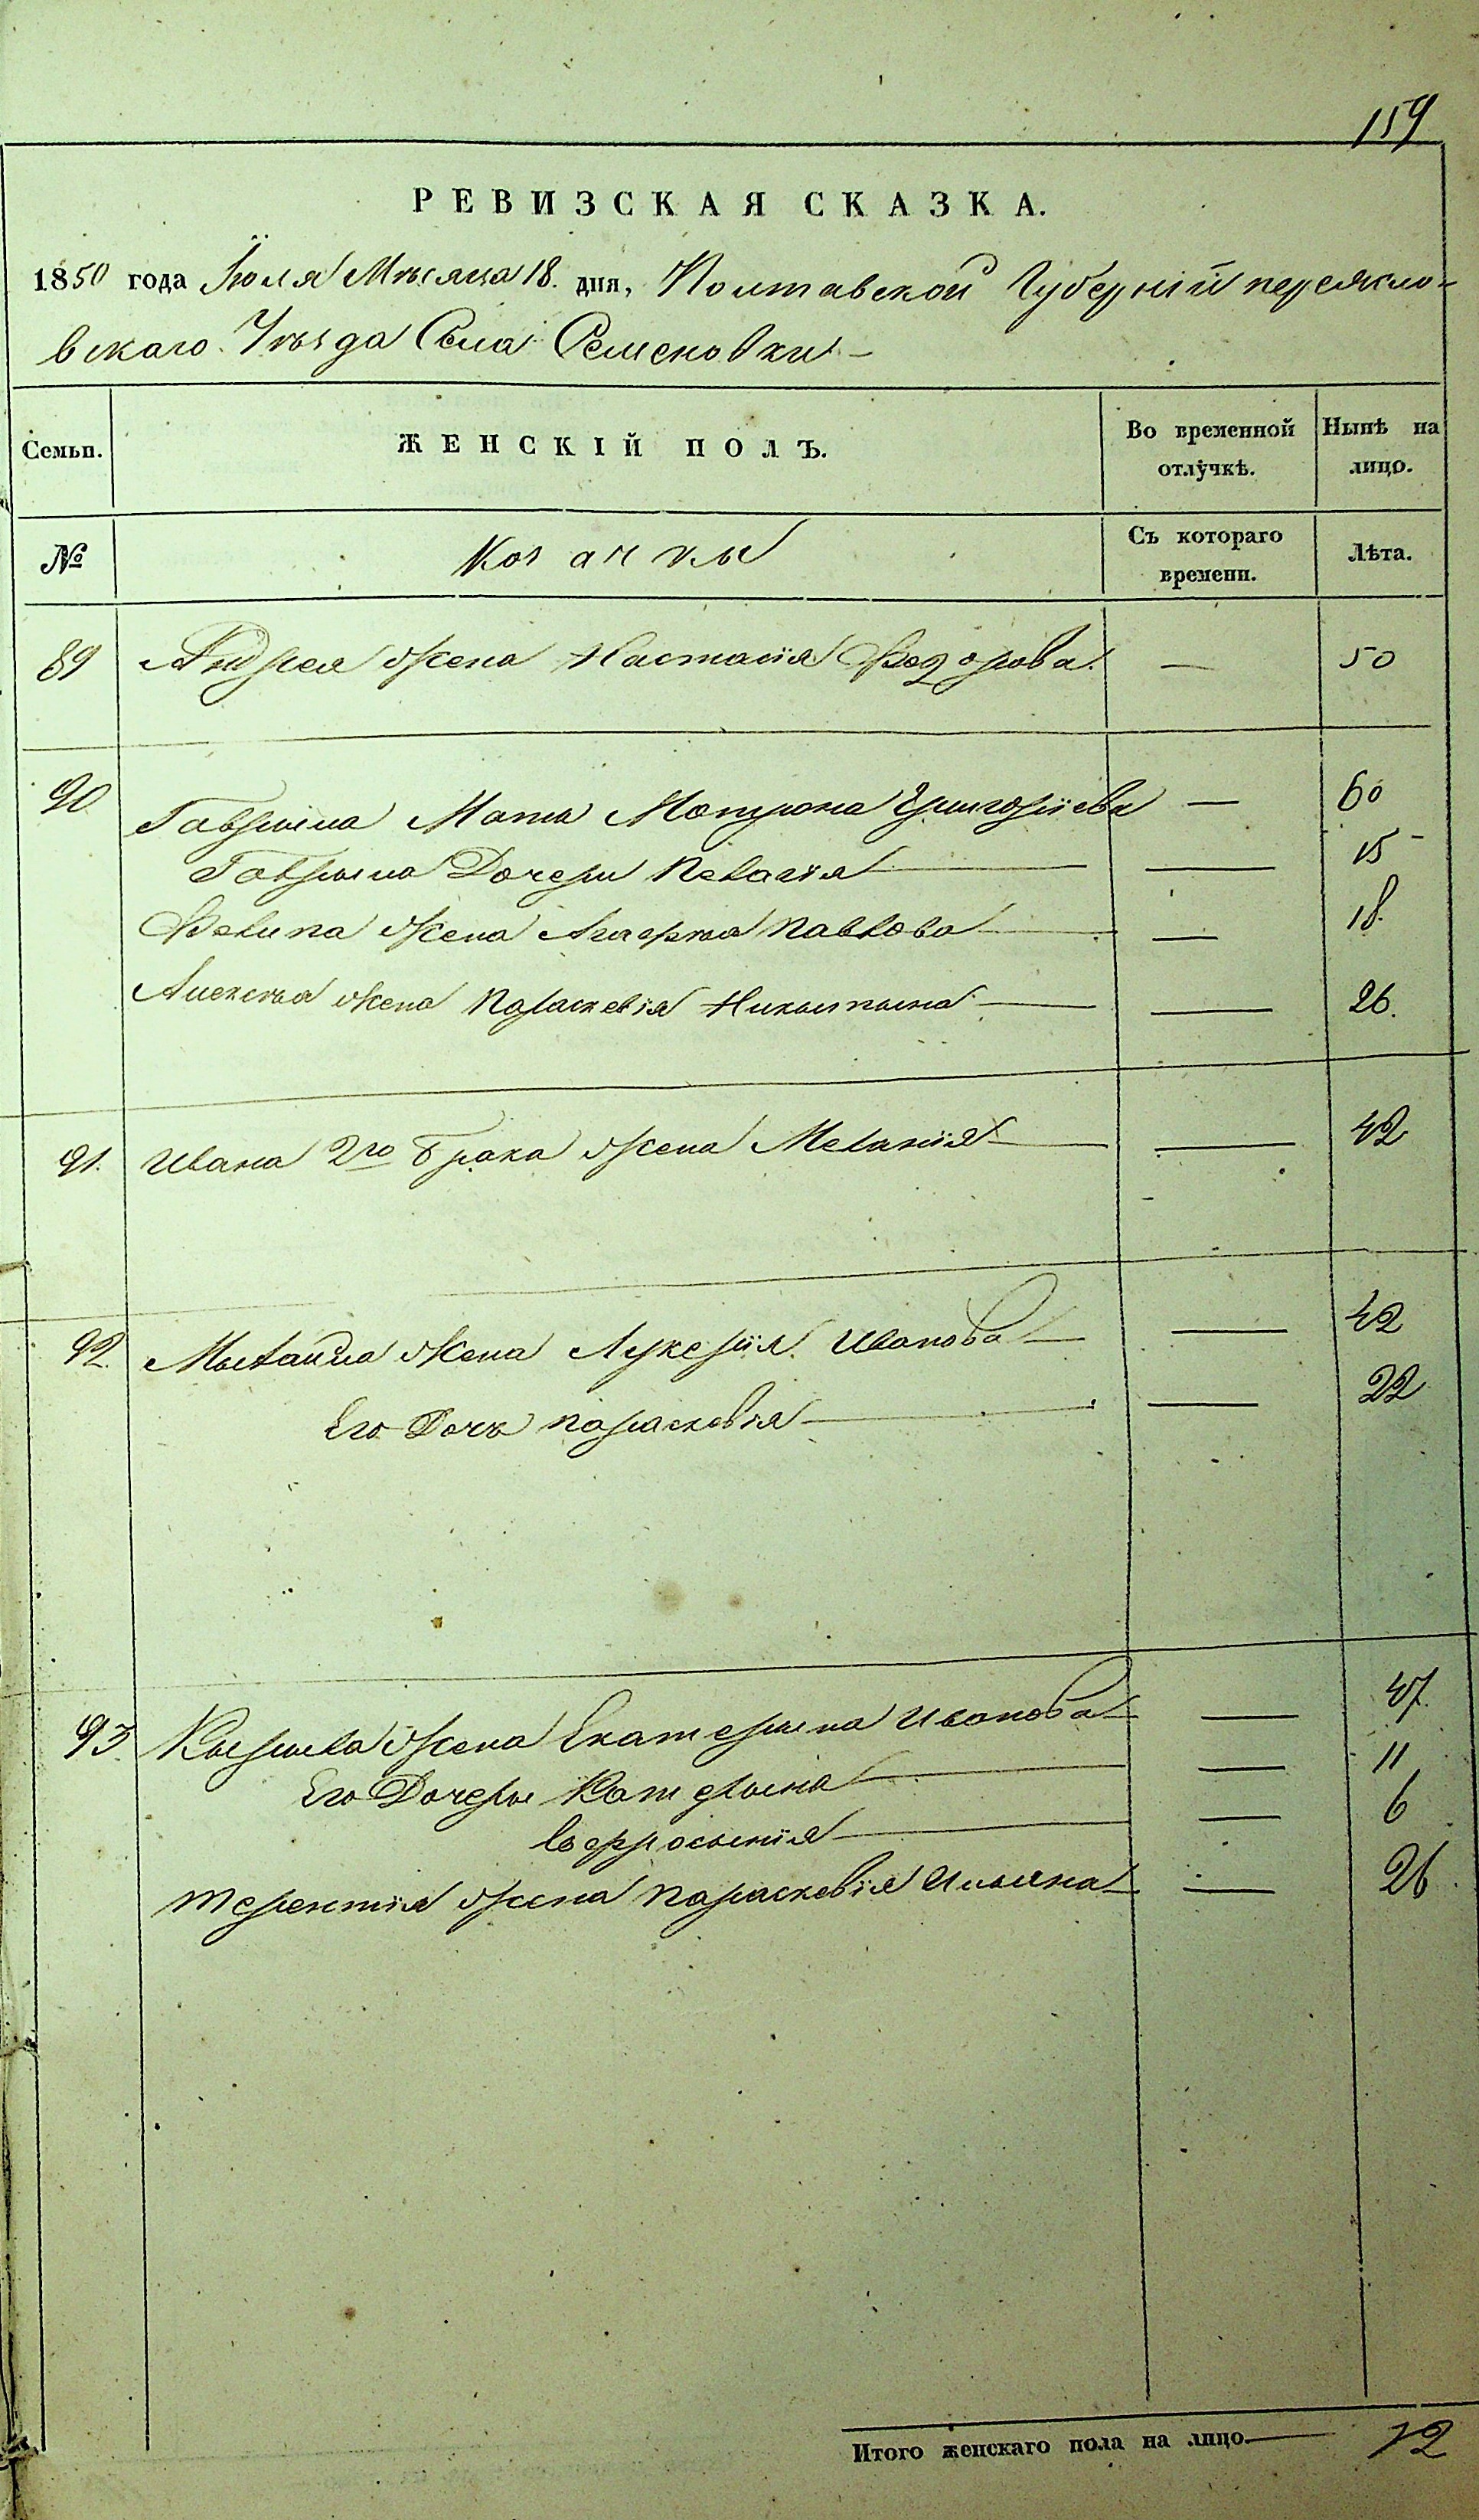 159
РЕВИЗСКАЯ СКАЗКА.
1850 года Іюля Мѣсяца 18. дня, Полтавской Губерній переясло-
вскаго Уѣзда Села Семеновки
Семьи. ЖЕНСКІЙ ПОЛЪ. Во временной отлучкѣ. Нынѣ на лицо.
№ Козачки Съ котораго времени. Лѣта.
89 Андрея Жена Настасія Федорова. — 50
90 Гаврыила Мать Мотрона Григоріева — 60
Гаврыила Дочери Пелагія — 15
Филипа Жена Агафія Павлова — 18.
Алексѣя Жена Параскевія Никитына — 26.
91. Ивана 2го брака Жена Меланія — 42
92. Мыхайла Жена Лукерія Иванова — 42
Его Дочь Параскевія — 22
93. Кырыла Жена Екатерына Иванова — 47.
Его Дочеры Катерына — 11
Ефросынія — 6
Терентія Жена Параскевія Ильина — 26
Итого женскаго пола на лицо — 12